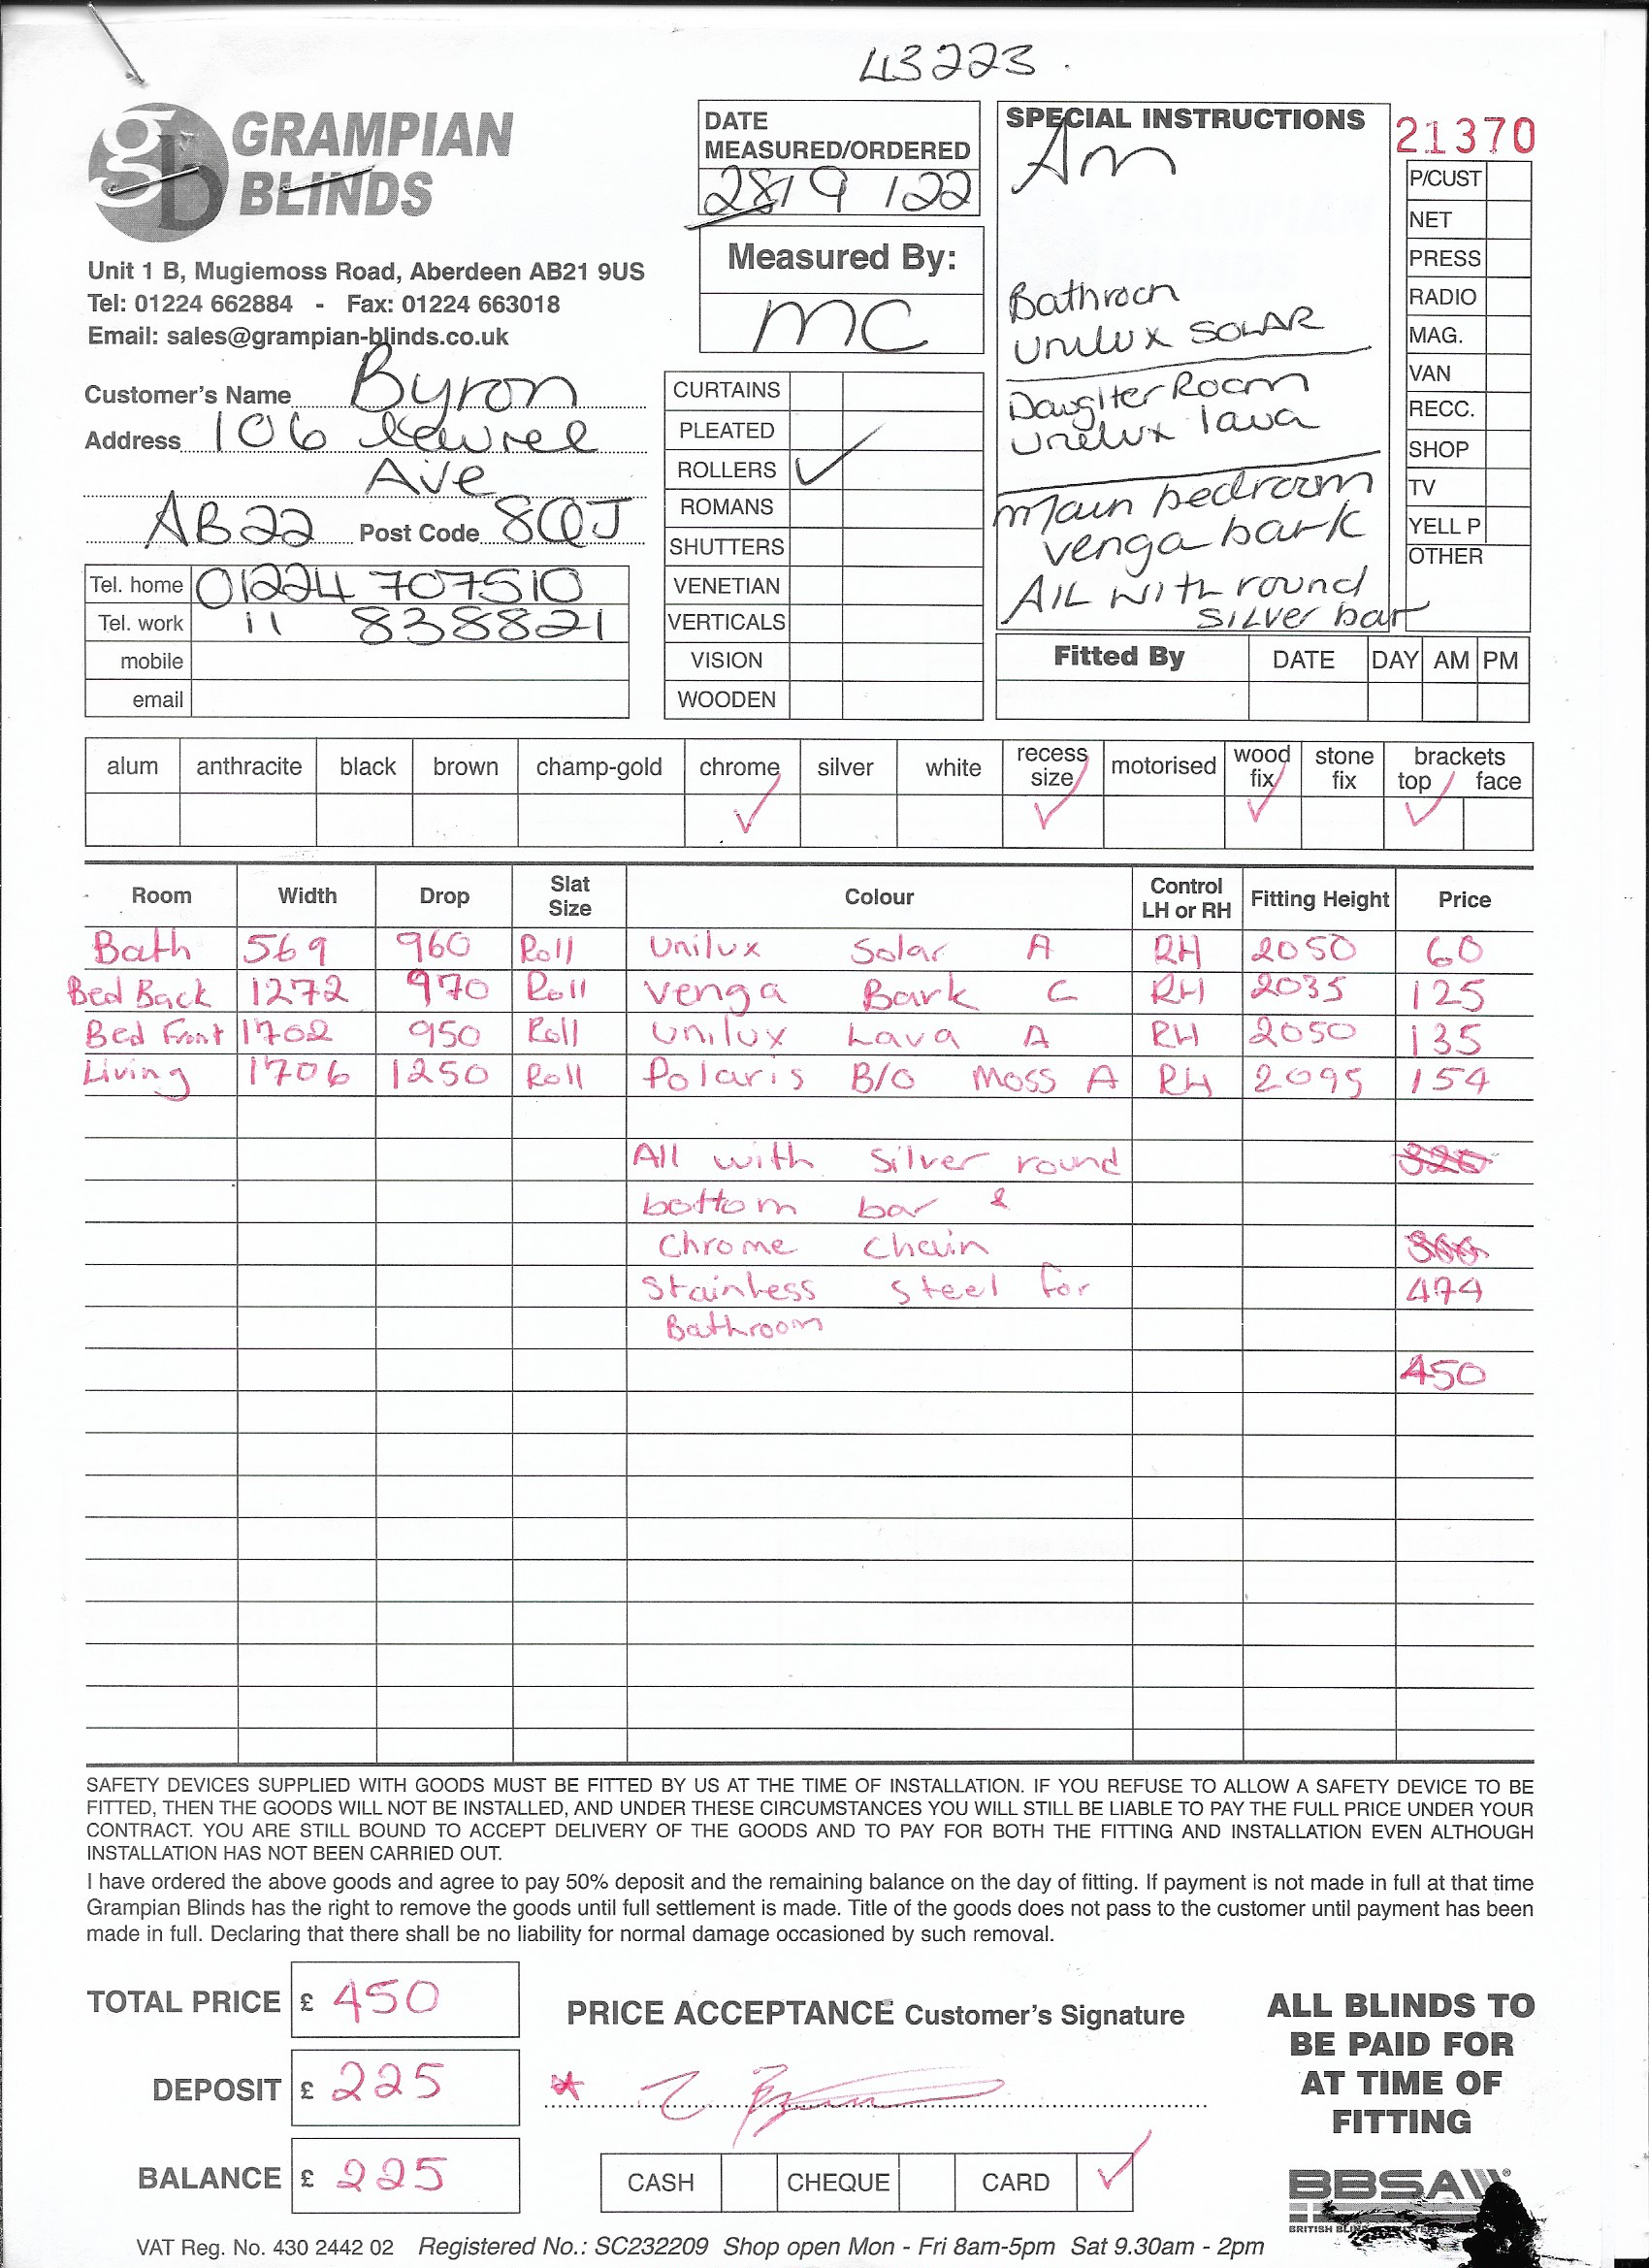 43223.
GRAMPIAN
BLINDS
Unit 1 B, Mugiemoss Road, Aberdeen AB21 9US
Tel: 01224 662884 - Fax: 01224 663018
Email: sales@grampian-blinds.co.uk
Customer's Name Byron
Address 106 Lawrel
Ave
AB22 Post Code 8QJ
Tel. home 01224 707510
Tel. work 11 838821
mobile
email
DATE
MEASURED/ORDERED
28/9/22
Measured By:
MC
CURTAINS
PLEATED
ROLLERS ✓
ROMANS
SHUTTERS
VENETIAN
VERTICALS
VISION
WOODEN
SPECIAL INSTRUCTIONS
Am
Bathroom
Unilux SOLAR
Daugter Room
Unilux lava
Main bedroom
venga bark
All with round
silver bar
21370
P/CUST
NET
PRESS
RADIO
MAG.
VAN
RECC.
SHOP
TV
YELL P
OTHER
Fitted By DATE DAY AM PM
alum anthracite black brown champ-gold chrome silver white recess size motorised wood fix stone fix brackets top face
✓ ✓ ✓ ✓
Room Width Drop Slat Size Colour Control LH or RH Fitting Height Price
Bath 569 960 Roll Unilux Solar A RH 2050 60
Bed Back 1272 970 Roll Venga Bark C RH 2035 125
Bed Front 1702 950 Roll Unilux Lava A RH 2050 135
Living 1706 1250 Roll Polaris B/O Moss A RH 2095 154
All with Silver round 320
bottom bar &
Chrome Chain
Stainless Steel for 474
Bathroom
450
SAFETY DEVICES SUPPLIED WITH GOODS MUST BE FITTED BY US AT THE TIME OF INSTALLATION. IF YOU REFUSE TO ALLOW A SAFETY DEVICE TO BE
FITTED, THEN THE GOODS WILL NOT BE INSTALLED, AND UNDER THESE CIRCUMSTANCES YOU WILL STILL BE LIABLE TO PAY THE FULL PRICE UNDER YOUR
CONTRACT. YOU ARE STILL BOUND TO ACCEPT DELIVERY OF THE GOODS AND TO PAY FOR BOTH THE FITTING AND INSTALLATION EVEN ALTHOUGH
INSTALLATION HAS NOT BEEN CARRIED OUT.
I have ordered the above goods and agree to pay 50% deposit and the remaining balance on the day of fitting. If payment is not made in full at that time
Grampian Blinds has the right to remove the goods until full settlement is made. Title of the goods does not pass to the customer until payment has been
made in full. Declaring that there shall be no liability for normal damage occasioned by such removal.
TOTAL PRICE £ 450
DEPOSIT £ 225
BALANCE £ 225
PRICE ACCEPTANCE Customer's Signature
*
CASH CHEQUE CARD ✓
ALL BLINDS TO
BE PAID FOR
AT TIME OF
FITTING
BBSA
VAT Reg. No. 430 2442 02 Registered No.: SC232209 Shop open Mon - Fri 8am-5pm Sat 9.30am - 2pm